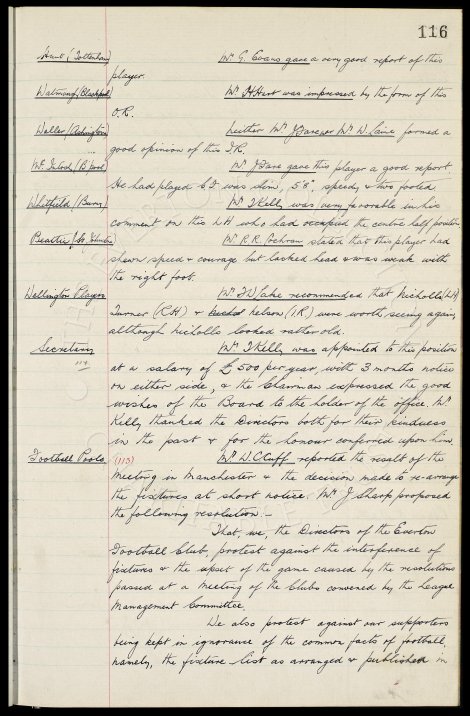 116
Hunt (Tottenham) Mr G. Evans gave a very good report of this
player.
Watmough (Blackpool) Mr H Hart was impressed by the form of this
O.R.
Waller (Ashington) Neither Mr J Fare or Mr W. Laine formed a
good opinion of this I.R.
Mc (B'pool) Mr J Fare gave this player a good report.
He had played C.F. was slim, 5'8", speedy & two footed.
Whitfield (Bury) Mr T Kelly was very favorable in his
comment on this L.H. who had occupied the centre half position
Beattie (St. Johnstone) Mr R.R. Cochran stated that this player had
shewn speed & courage but lacked head & was weak with
the right foot.
Wellington Players Mr J D Lake recommended that Nicholls (LH)
Turner (R.H) & Nelson (I.R) were worth seeing again,
although Nicholls looked rather old.
Secretary Mr T Kelly was appointed to this position
at a salary of £500 per year, with 3 months notice
on either side, & the Chairman expressed the good
wishes of the Board to the holder of the office. Mr
Kelly thanked the Directors both for their kindness
in the past & for the honour conferred upon him
Football Pools (115) Mr W.C Cuff reported the result of the
meeting in Manchester & the decision made to re-arrange
the fixtures at short notice. Mr J Sharp proposed
the following resolution:-
That, we, the Directors of the Everton
Football Club, protest against the interference of
fixtures & the upset of the game caused by the resolutions
passed at a meeting of the Clubs convened by the League
Management Committee.
We also protest against our supporters
being kept in ignorance of the common facts of football,
namely, the fixture list as arranged & published in